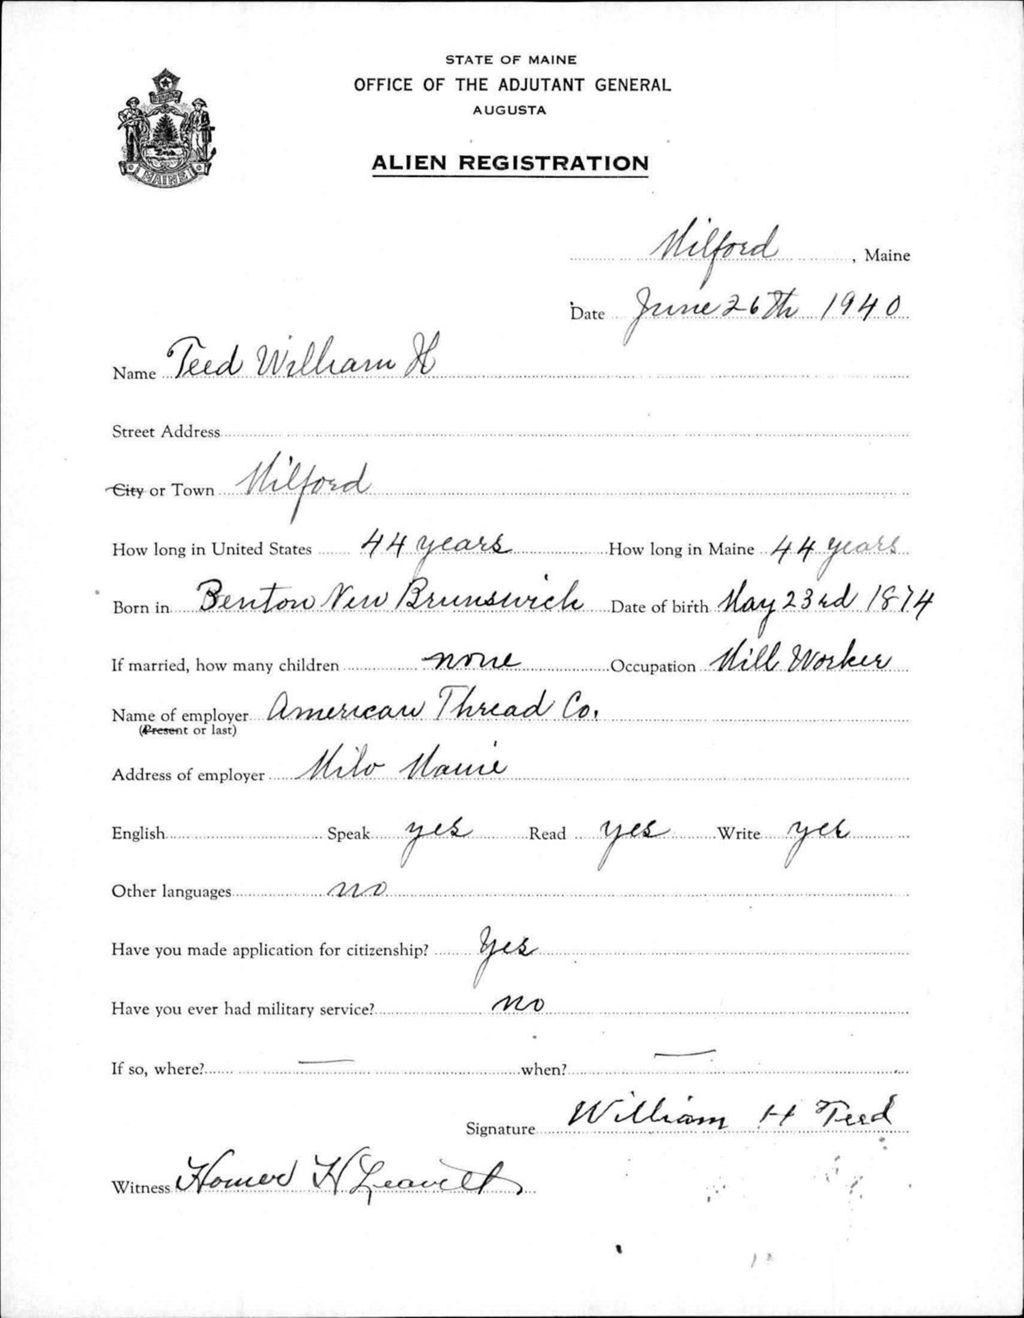 STATE OF MAINE
OFFICE OF THE ADJUTANT GENERAL
AUGUSTA
ALIEN REGISTRATION
MAINE
Milford, Maine
Date June 26th 1940
Name Teed William H
Street Address
City or Town Milford
How long in United States 44 years How long in Maine 44 years
Born in Benton New Brunswick Date of birth May 23rd 1874
If married, how many children none Occupation Mill Worker
Name of employer American Thread Co.
(Present or last)
Address of employer Milo Maine
English Speak yes Read yes Write yes
Other languages no
Have you made application for citizenship? Yes
Have you ever had military service? no
If so, where? — when? —
Signature William H Teed
Witness Homer H Leavitt